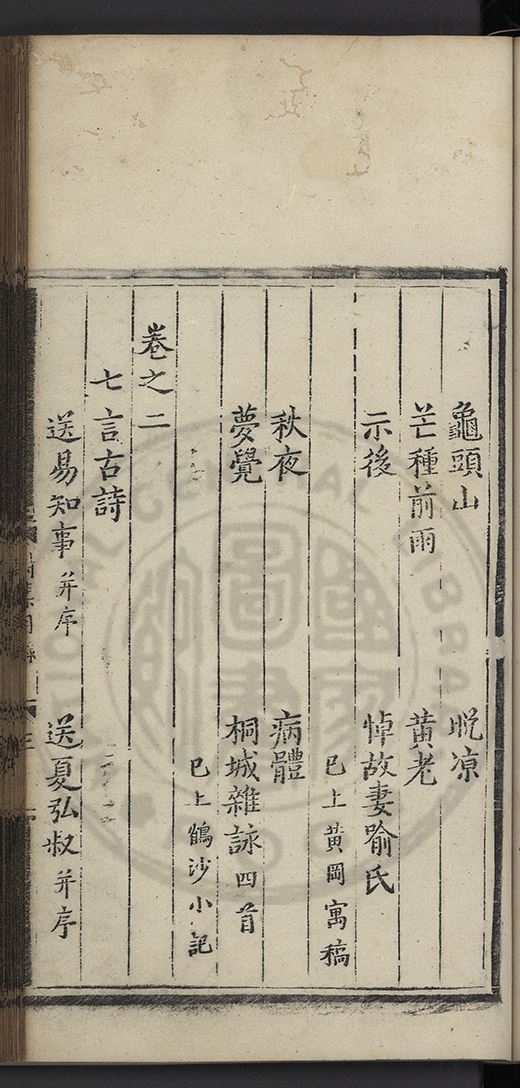 龜頭山　晚凉
芒種前雨　黃老
示後　悼故妻喻氏
已上黃岡寓稿
秋夜　病體
夢覺　桐城雜詠四首
已上鶴沙小記
卷之二
七言古詩
送易知事并序　送夏弘叔并序